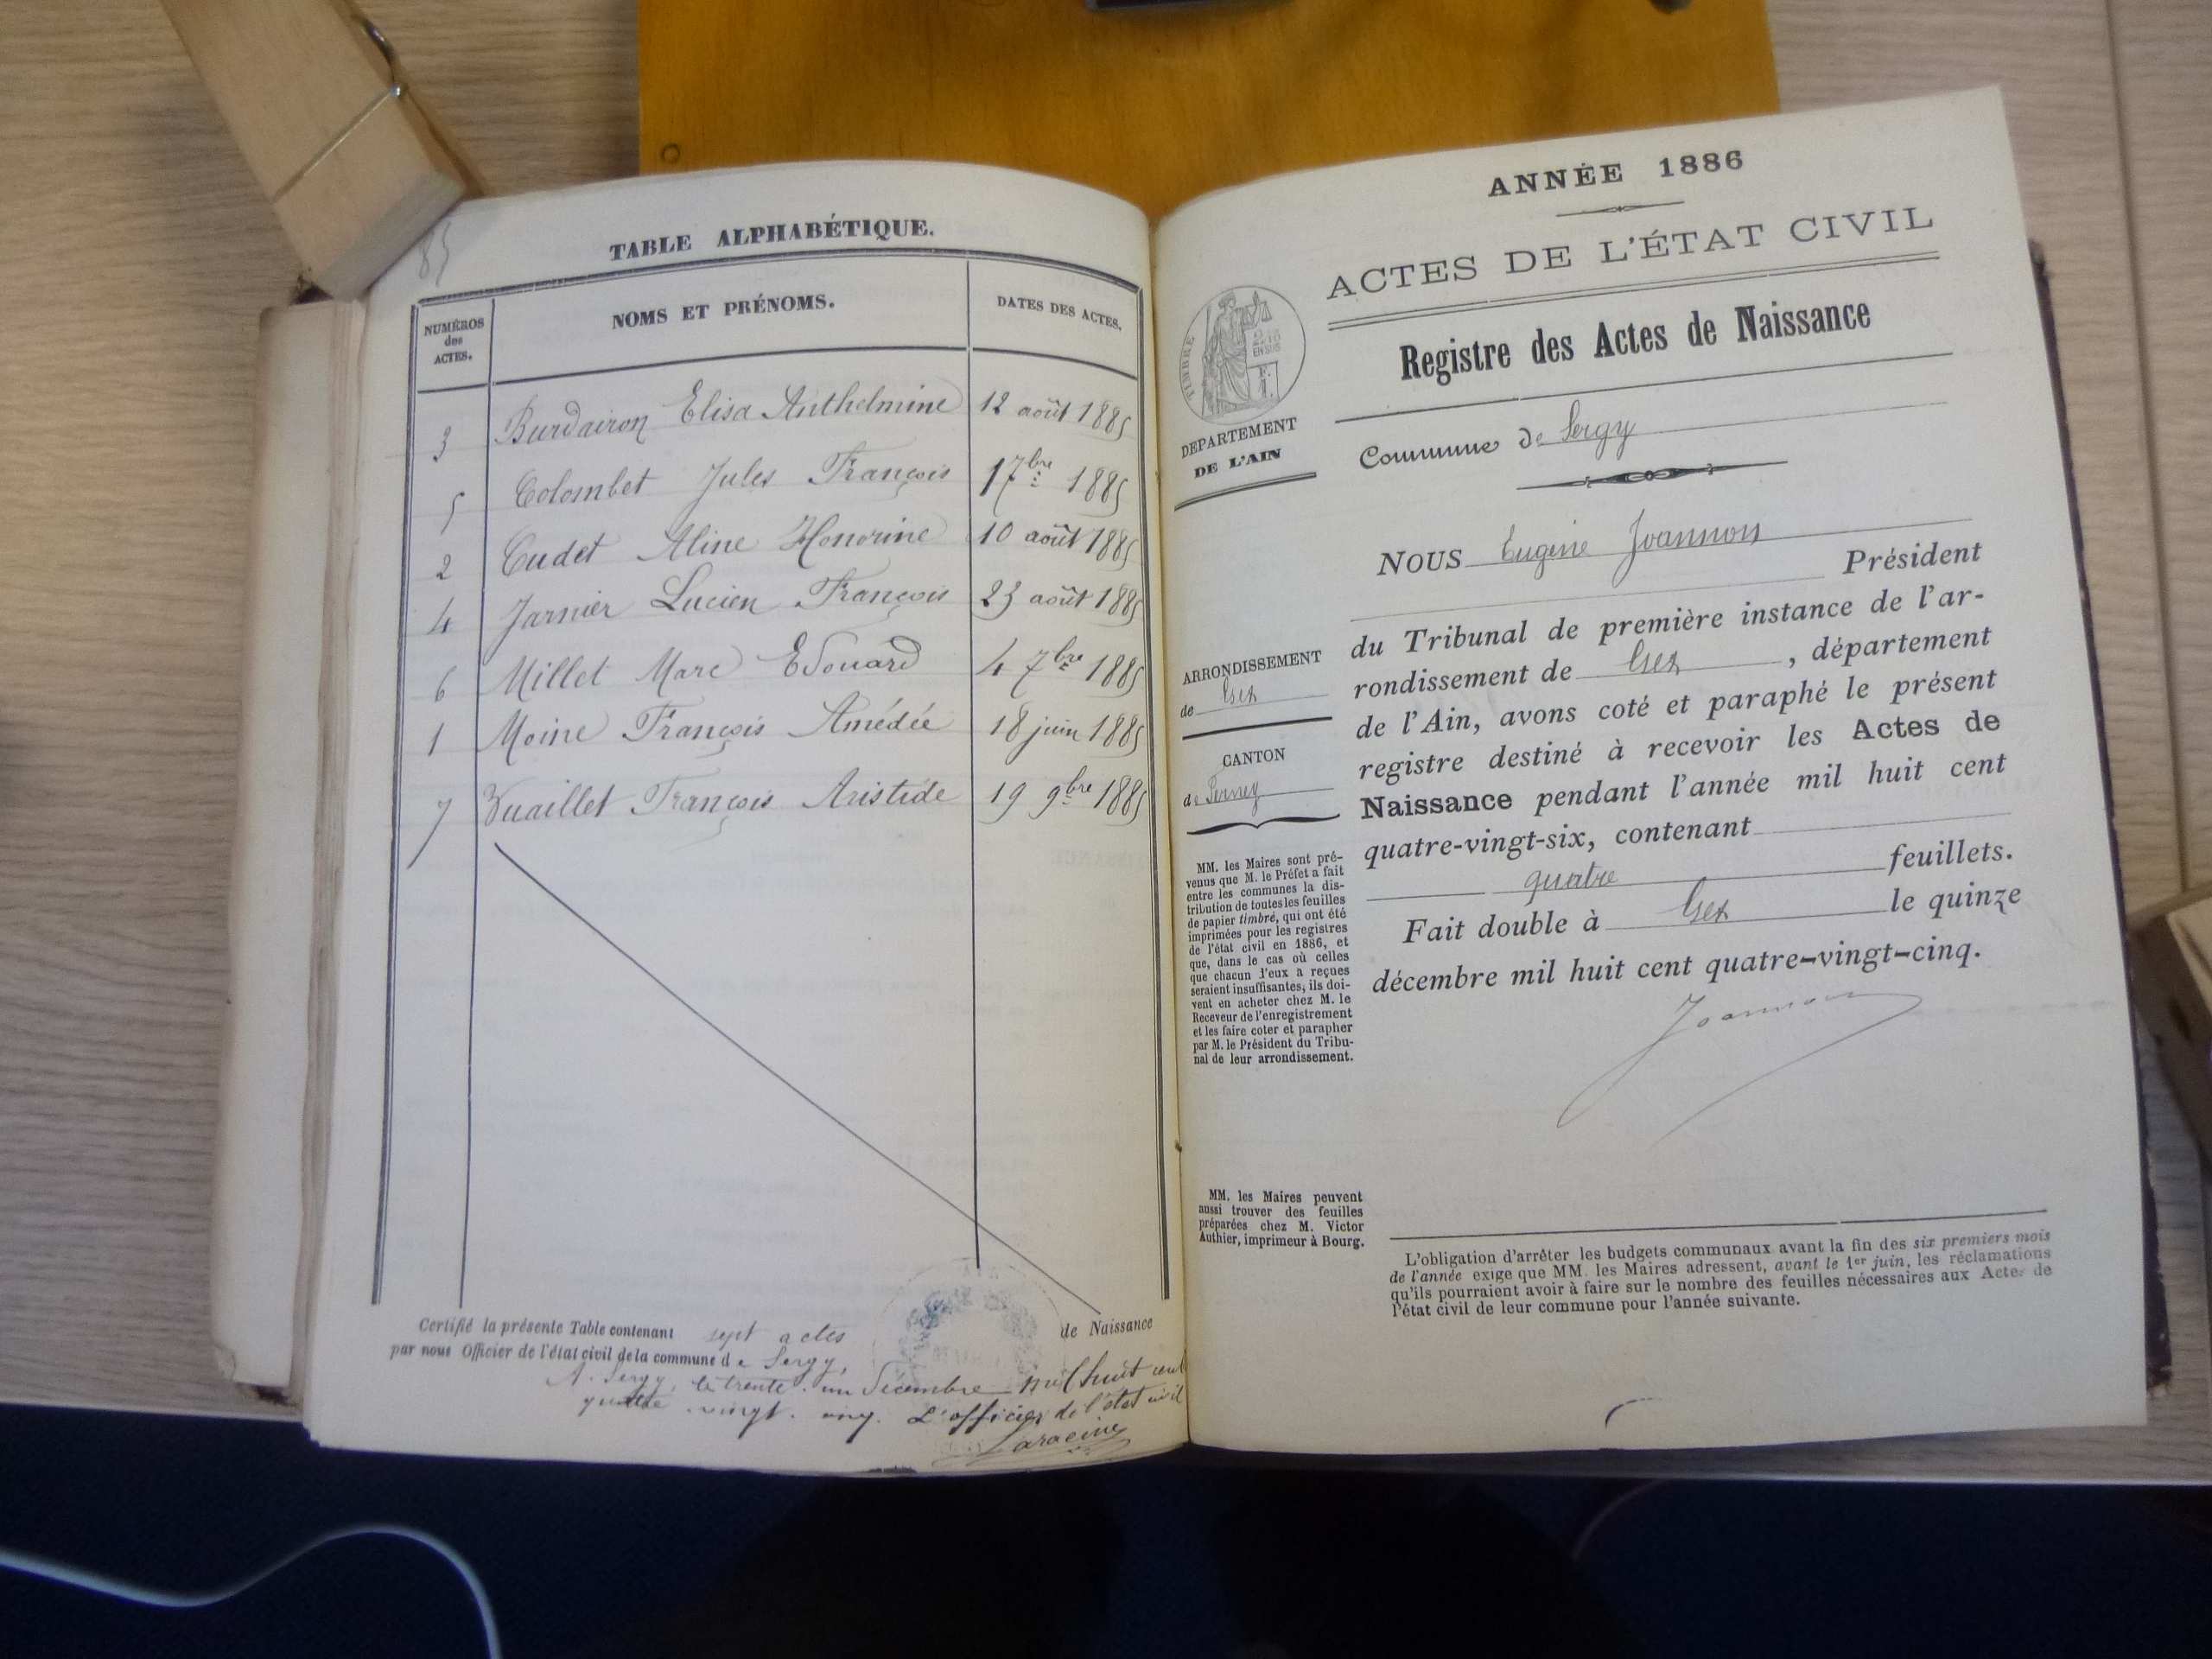 85
TABLE ALPHABÉTIQUE.
NUMÉROS
des
ACTES.
NOMS ET PRÉNOMS.
DATES DES ACTES.
3 Burdairon Elisa Anthelmine 12 août 1885
5 Colombet Jules François 1 7bre 1885
2 Cudet Aline Honorine 10 août 1885
4 Jarnier Lucien François 23 août 1885
6 Millet Marc Edouard 4 7bre 1885
1 Moine François Amédée 18 juin 1885
7 Vuaillet François Aristide 19 9bre 1885
Certifié la présente Table contenant sept actes de Naissance
par nous Officier de l'état civil de la commune de Sergy,
A Sergy, le trente-un Décembre mil huit cent
quatre-vingt-cinq. L'officier de l'état civil
Laracine
ANNÉE 1886
ACTES DE L'ÉTAT CIVIL
Registre des Actes de Naissance
TIMBRE
2/10
EN SUS
DEPARTEMENT
DE L'AIN
Commune de Sergy
ARRONDISSEMENT
de Gex
CANTON
de Ferney
MM. les Maires sont pré-
venus que M. le Préfet a fait
entre les communes la dis-
tribution de toutes les feuilles
de papier timbré, qui ont été
imprimées pour les registres
de l'état civil en 1886, et
que, dans le cas où celles
que chacun d'eux a reçues
seraient insuffisantes, ils doi-
vent en acheter chez M. le
Receveur de l'enregistrement
et les faire coter et parapher
par M. le Président du Tribu-
nal de leur arrondissement.
MM. les Maires peuvent
aussi trouver des feuilles
préparées chez M. Victor
Authier, imprimeur à Bourg.
NOUS Eugène Joannon
Président
du Tribunal de première instance de l'ar-
rondissement de Gex, département
de l'Ain, avons coté et paraphé le présent
registre destiné à recevoir les Actes de
Naissance pendant l'année mil huit cent
quatre-vingt-six, contenant
quatre feuillets.
Fait double à Gex le quinze
décembre mil huit cent quatre-vingt-cinq.
Joannon
L'obligation d'arrêter les budgets communaux avant la fin des six premiers mois
de l'année exige que MM. les Maires adressent, avant le 1er juin, les réclamations
qu'ils pourraient avoir à faire sur le nombre des feuilles nécessaires aux Actes de
l'état civil de leur commune pour l'année suivante.